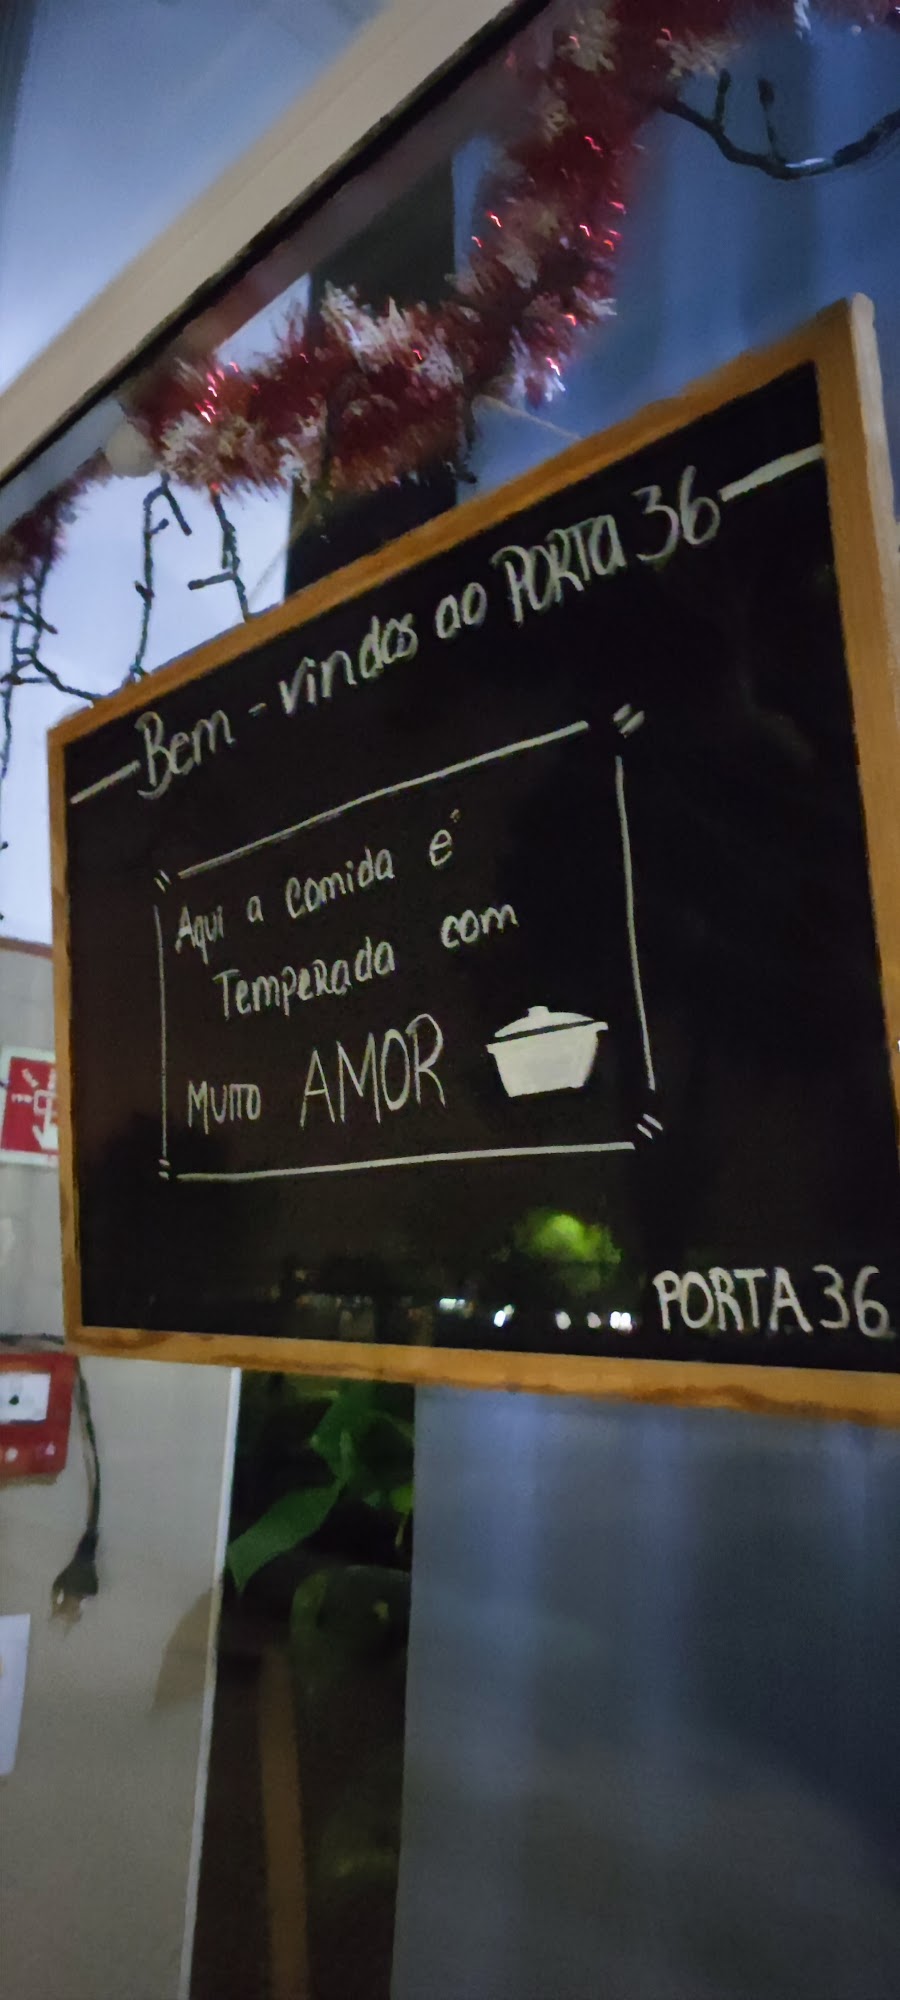 Bem-vindos ao PORTA 36
Aqui a comida é
Temperada com
MUITO AMOR
PORTA 36